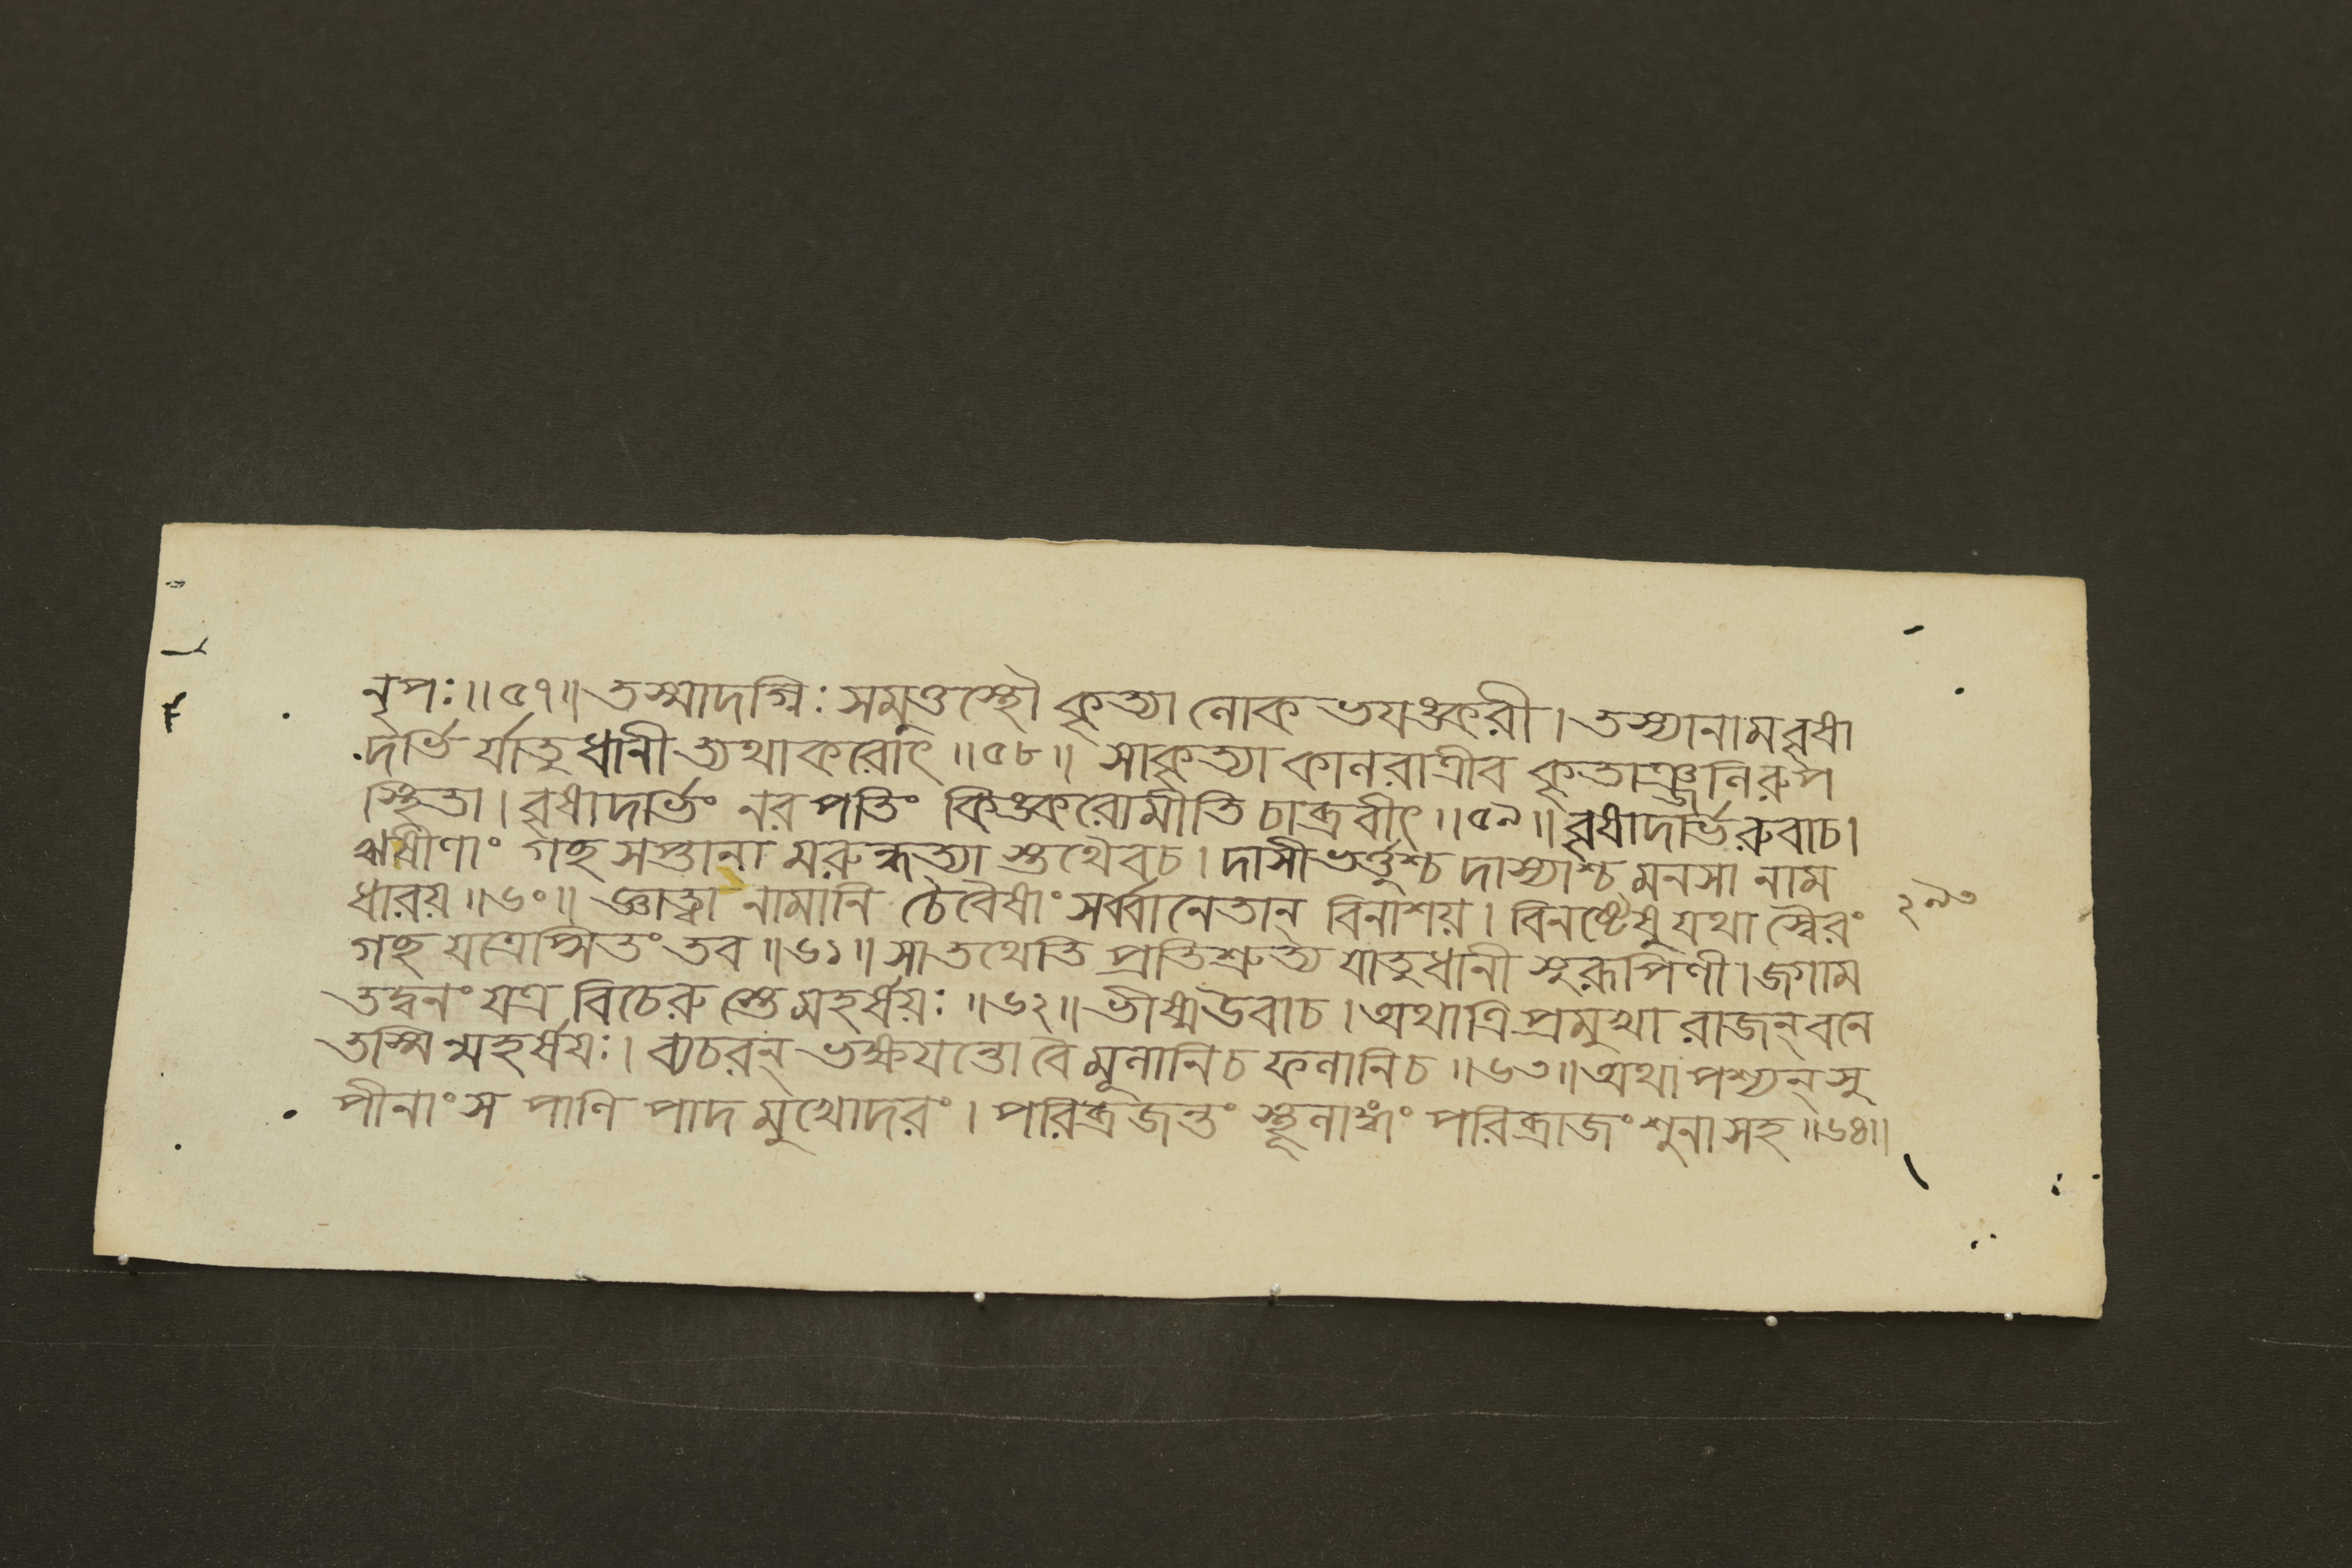 নৃপঃ॥৫৭॥ তস্মাদগ্নিঃ সমুত্তস্থৌ কৃত্যা লোক ভয়ঙ্করী। তস্যানামবৃষা
দর্ভি র্যাতুধানীত্যথাকরোৎ॥৫৮॥ সাকৃত্যা কালরাত্রীব কৃতাঞ্জলিরুপ
স্থিতা। বৃষাদর্ভিং নরপতিং কিঙ্করোমীতি চাব্রবীৎ॥৫৯॥ বৃষাদর্ভিরুবাচ।
ঋষীণাং গচ্ছ সপ্তানা মরুন্ধত্যা স্তথৈবচ। দাসীভর্ত্তুশ্চ দাস্যাশ্চ মনসা নাম
ধারয়॥৬০॥ জ্ঞাত্বা নামানি চৈবৈষাং সর্ব্বানেতান্ বিনাশয়। বিনষ্টেষু যথা স্বৈরং
গচ্ছ যত্রেপ্সিতং তব॥৬১॥ সাতথেতি প্রতিশ্রুত্য যাতুধানী সুরূপিণী। জগাম
তদ্বনং যত্র বিচেরু স্তে মহর্ষয়ঃ॥৬২॥ ভীষ্মউবাচ। অথাত্রি প্রমুখা রাজন্ বনে
তস্মি ন্মহর্ষয়ঃ। ব্যচরন্ ভক্ষয়ন্তো বৈ মূলানিচ ফলানিচ॥৬৩॥ অথাপশ্যন্ সু
পীনাংস পাণি পাদ মুখোদরং। পরিব্রজন্তং স্থূলাঙ্গং পরিব্রাজং শুনাসহ॥৬৪॥
২৯৩